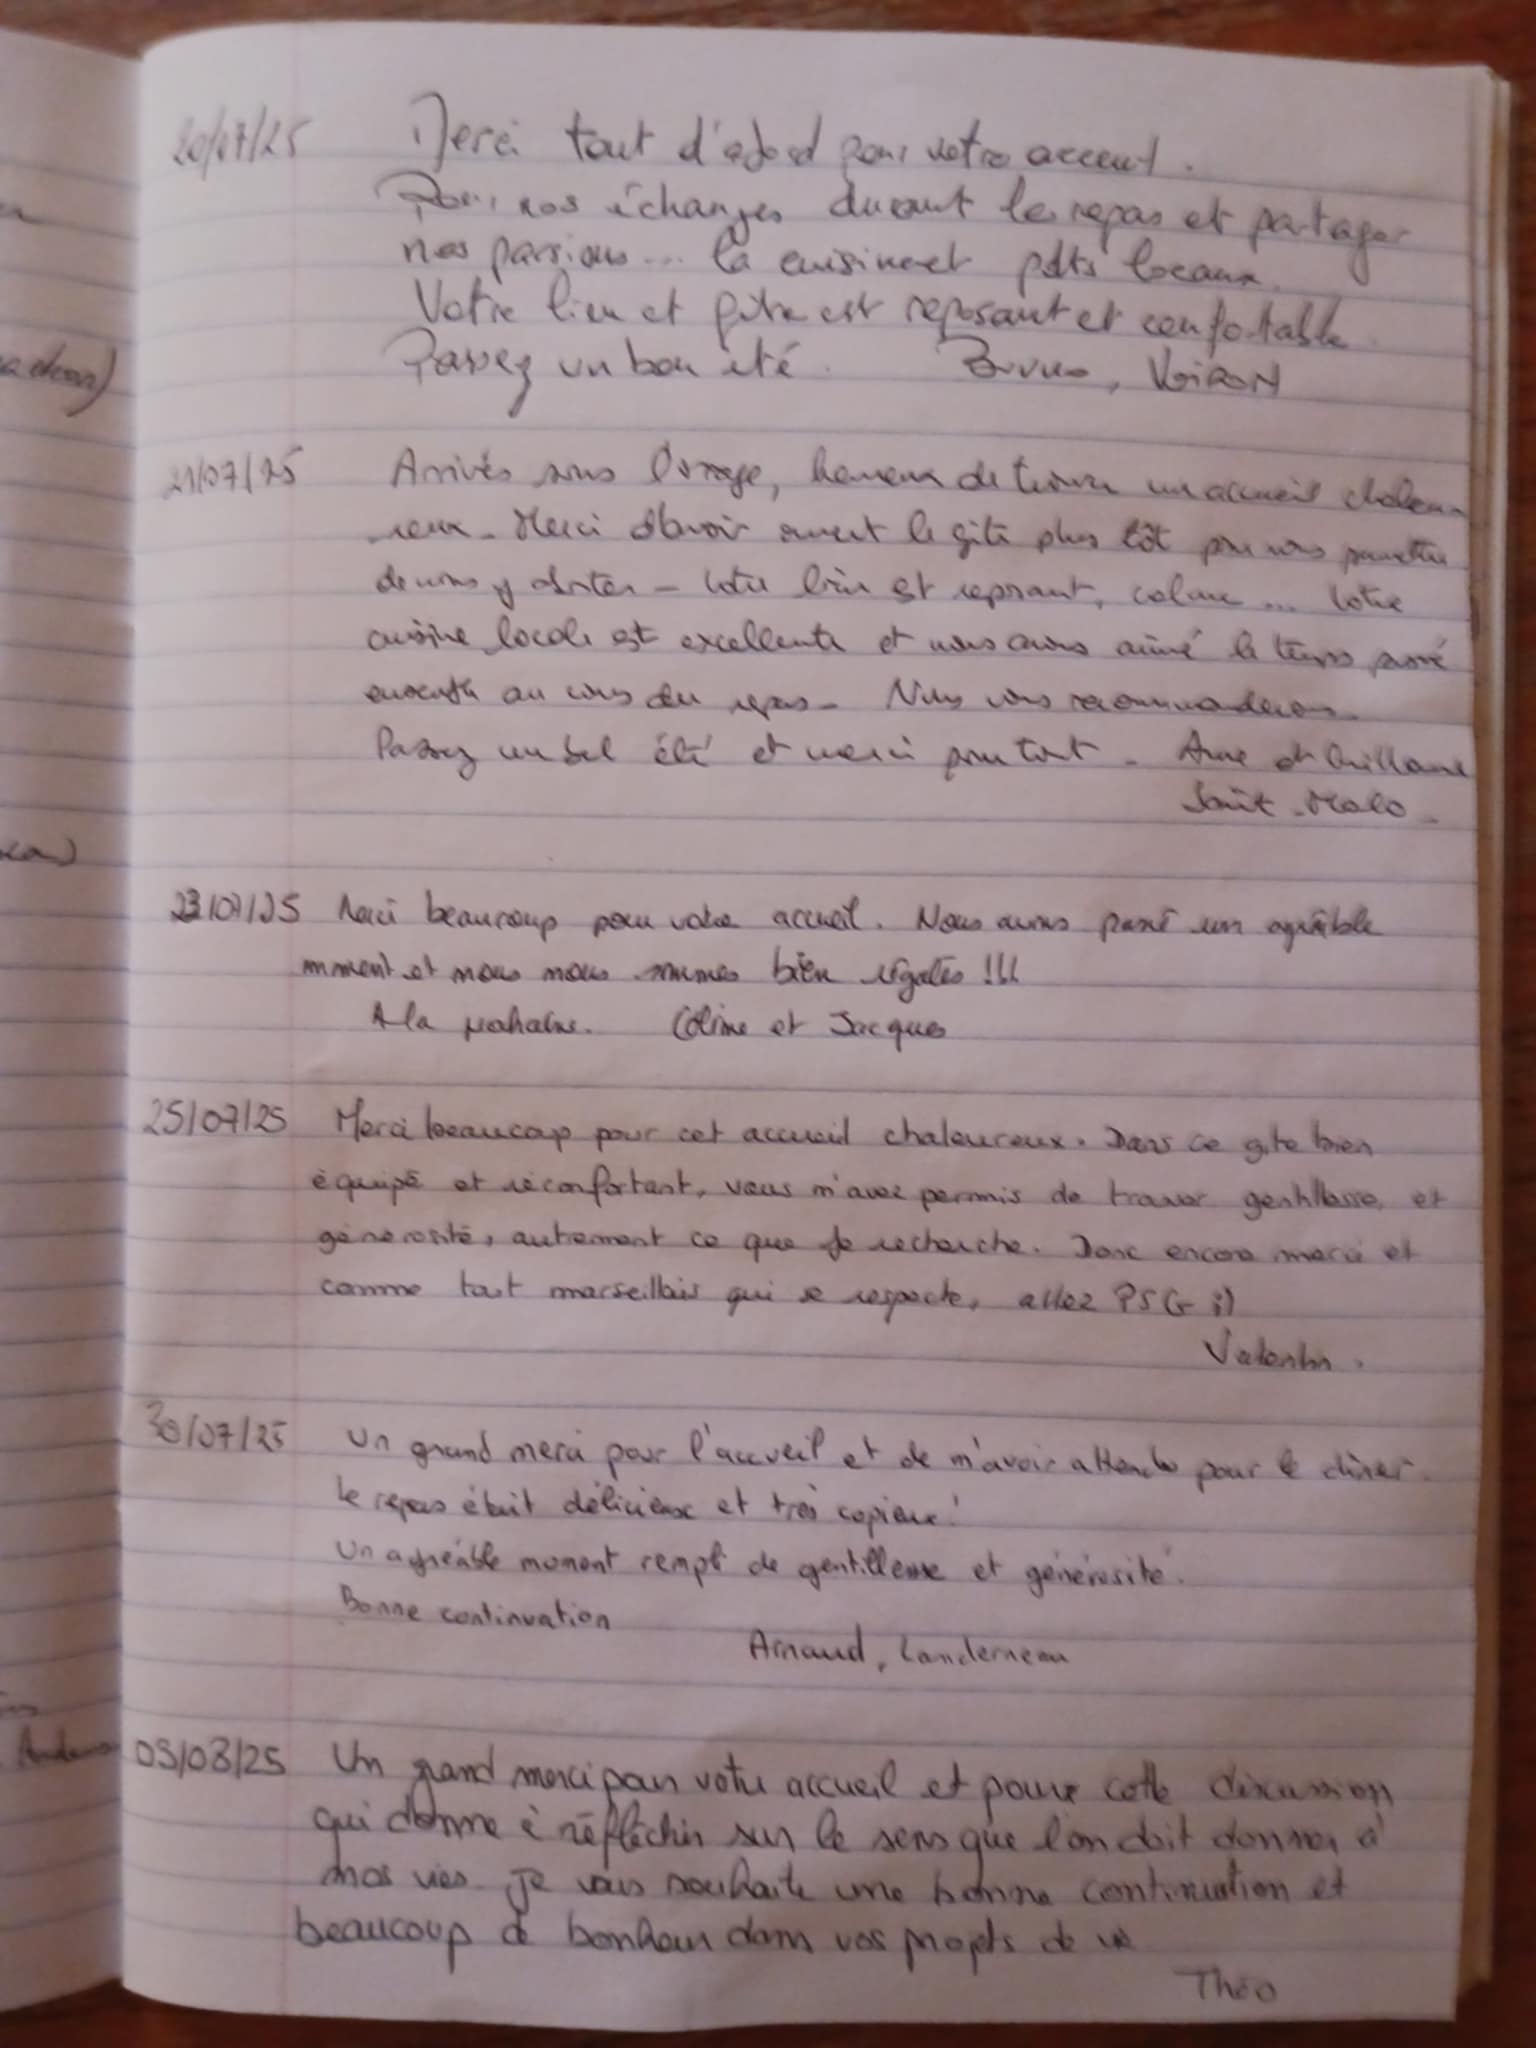 20/07/25 Merci tout d'abord pour votre accueil.
Pour nos échanges durant le repas et partager
nos passions... la cuisine et pdts locaux.
Votre lieu et gîte est reposant et confortable.
Passez un bon été. Bruno, VOIRON
21/07/25 Arrivés sous l'orage, heureux de trouver un accueil chaleu
reux. Merci d'avoir ouvert le gîte plus tôt pour nous permettre
de nous y abriter - Votre lieu est reposant, calme... Votre
cuisine locale est excellente et nous avons aimé le temps passé
ensemble au cours du repas - Nous vous recommanderons.
Passez un bel été et merci pour tout - Anne et Guillaume
Saint-Malo -
23/07/25 Merci beaucoup pour votre accueil. Nous avons passé un agréable
moment et nous nous sommes bien régalés !!!
A la prochaine. Coline et Jacques
25/07/25 Merci beaucoup pour cet accueil chaleureux. Dans ce gîte bien
équipé et réconfortant, vous m'avez permis de trouver gentillesse et
générosité, autrement ce que je recherche. Donc encore merci et
comme tout marseillais qui se respecte, allez PSG ;)
Valentin.
30/07/25 Un grand merci pour l'accueil et de m'avoir attendu pour le dîner.
Le repas était délicieux et très copieux!
Un agréable moment rempli de gentillesse et générosité.
Bonne continuation
Arnaud, Landerneau
03/08/25 Un grand merci pour votre accueil et pour cette discussion
qui donne à réfléchir sur le sens que l'on doit donner à
nos vies. Je vous souhaite une bonne continuation et
beaucoup de bonheur dans vos projets de vie
Théo